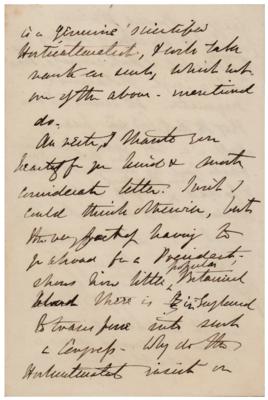 is a genuine scientific
Horticulturalist, & will take
rank as such, which not
one of the above-mentioned
do.
I thank you
heartily for your kind & most
considerate letter. I wish I
could think otherwise, but
the very fact of having to
go abroad for a President
shows how little popular Botanical
there is in England
to such
a Congress. Why do the
Horticulturalists insist on